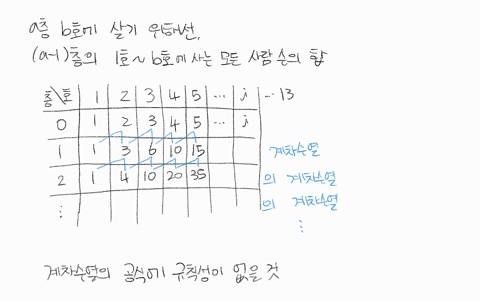 a층 b호에 살기 위해선,
(a-1)층의 1호~b호에 사는 모든 사람 수의 합
층\호 1 2 3 4 5 … i … 13
0 1 2 3 4 5 … i
1 1 3 6 10 15 계차수열
2 1 4 10 20 35 의 계차수열
⋮ 의 계차수열
⋮
계차수열의 공식에 규칙성이 없을 것